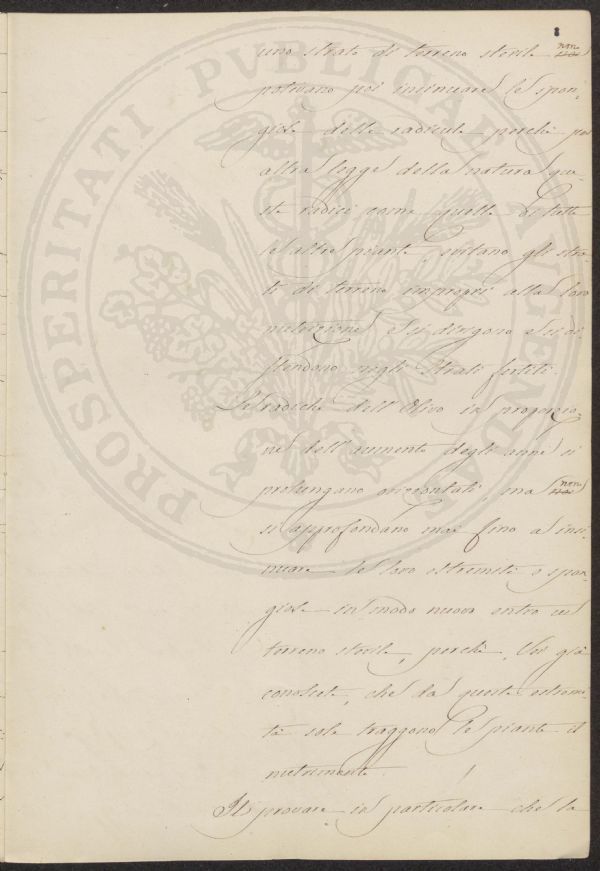 8
uno strato di terreno sterile non
potevano poi insinuare le spon-
giole delle radicule perché per
altra legge della natura que-
ste radici come quelle di tutte
le altre piante, evitano gli stra-
ti di terreno impropri alla loro
nutrizione e si dirigono e si di-
stendono negli strati fertili.
Le radiche dell'Olivo in proporzio-
ne dell'aumento degli anni si
prolungano orizzontali, ma non
si approfondano mai fino a insi-
nuare le loro estremità o spon-
giole in modo nuovo entro un
terreno sterile, perché, Voi già
conoscete, che da queste estremi-
tà sole traggono le piante il
nutrimento.
Il provare in particolare che la
PROSPERITATI PUBLICAE AUGENDAE